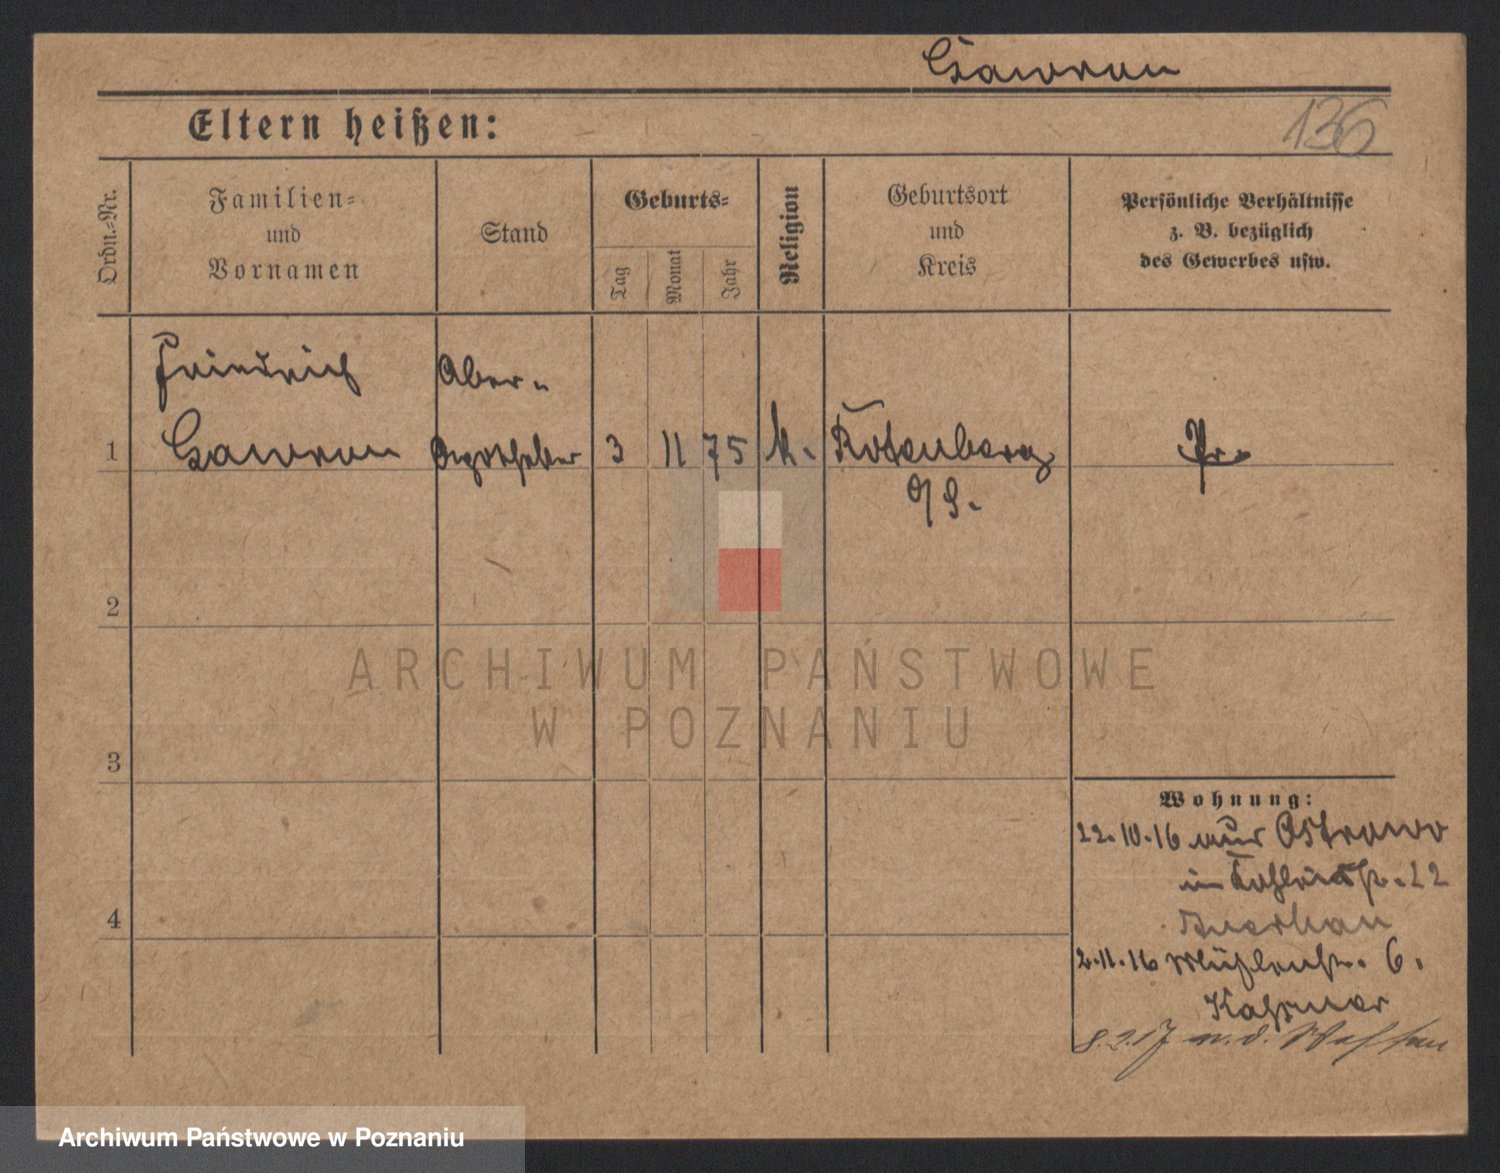 Gawron
136
Eltern heißen:
Ordn.-Nr.
Familien-
und
Vornamen
Stand
Geburts-
Tag
Monat
Jahr
Religion
Geburtsort
und
Kreis
Persönliche Verhältnisse
z. B. bezüglich
des Gewerbes usw.
Friedrich Ober-
1 Gawron Apotheker 3 11 75 k. Rosenberg Pr.
O/S.
2
ARCHIWUM PAŃSTWOWE
W POZNANIU
3
Wohnung:
22.10.16 aus Ostrowo
22
4
2.11.16 Mühlenstr. 6.
8.2.17 n. d.
Archiwum Państwowe w Poznaniu